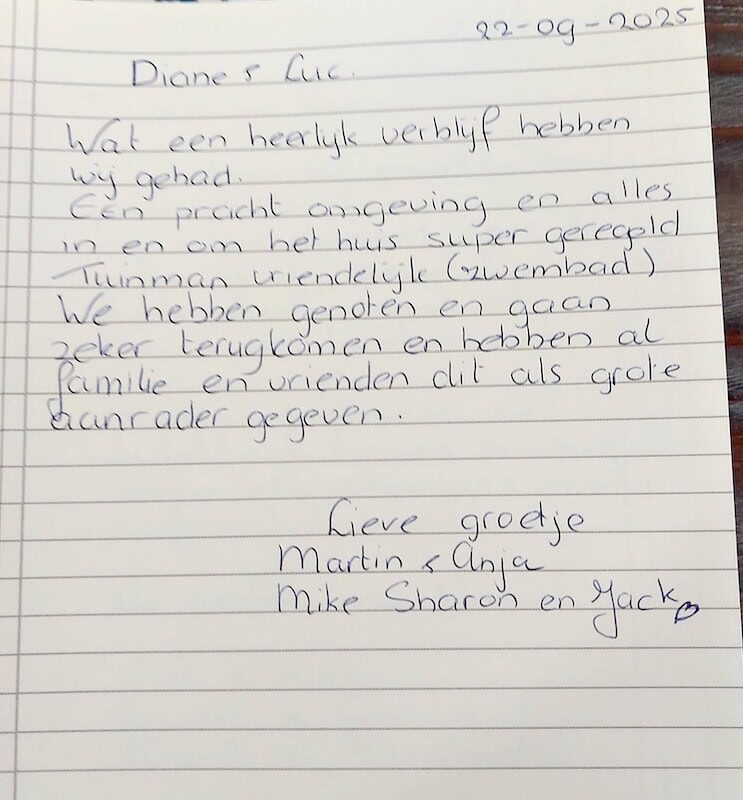 22-09-2025
Diane & Luc.
Wat een heerlijk verblijf hebben
wij gehad.
Een pracht omgeving en alles
in en om het huis super geregeld
Tuinman vriendelijk (zwembad)
We hebben genoten en gaan
zeker terugkomen en hebben al
familie en vrienden dit als grote
aanrader gegeven.
Lieve groetje
Martin & Anja
Mike Sharon en Jack